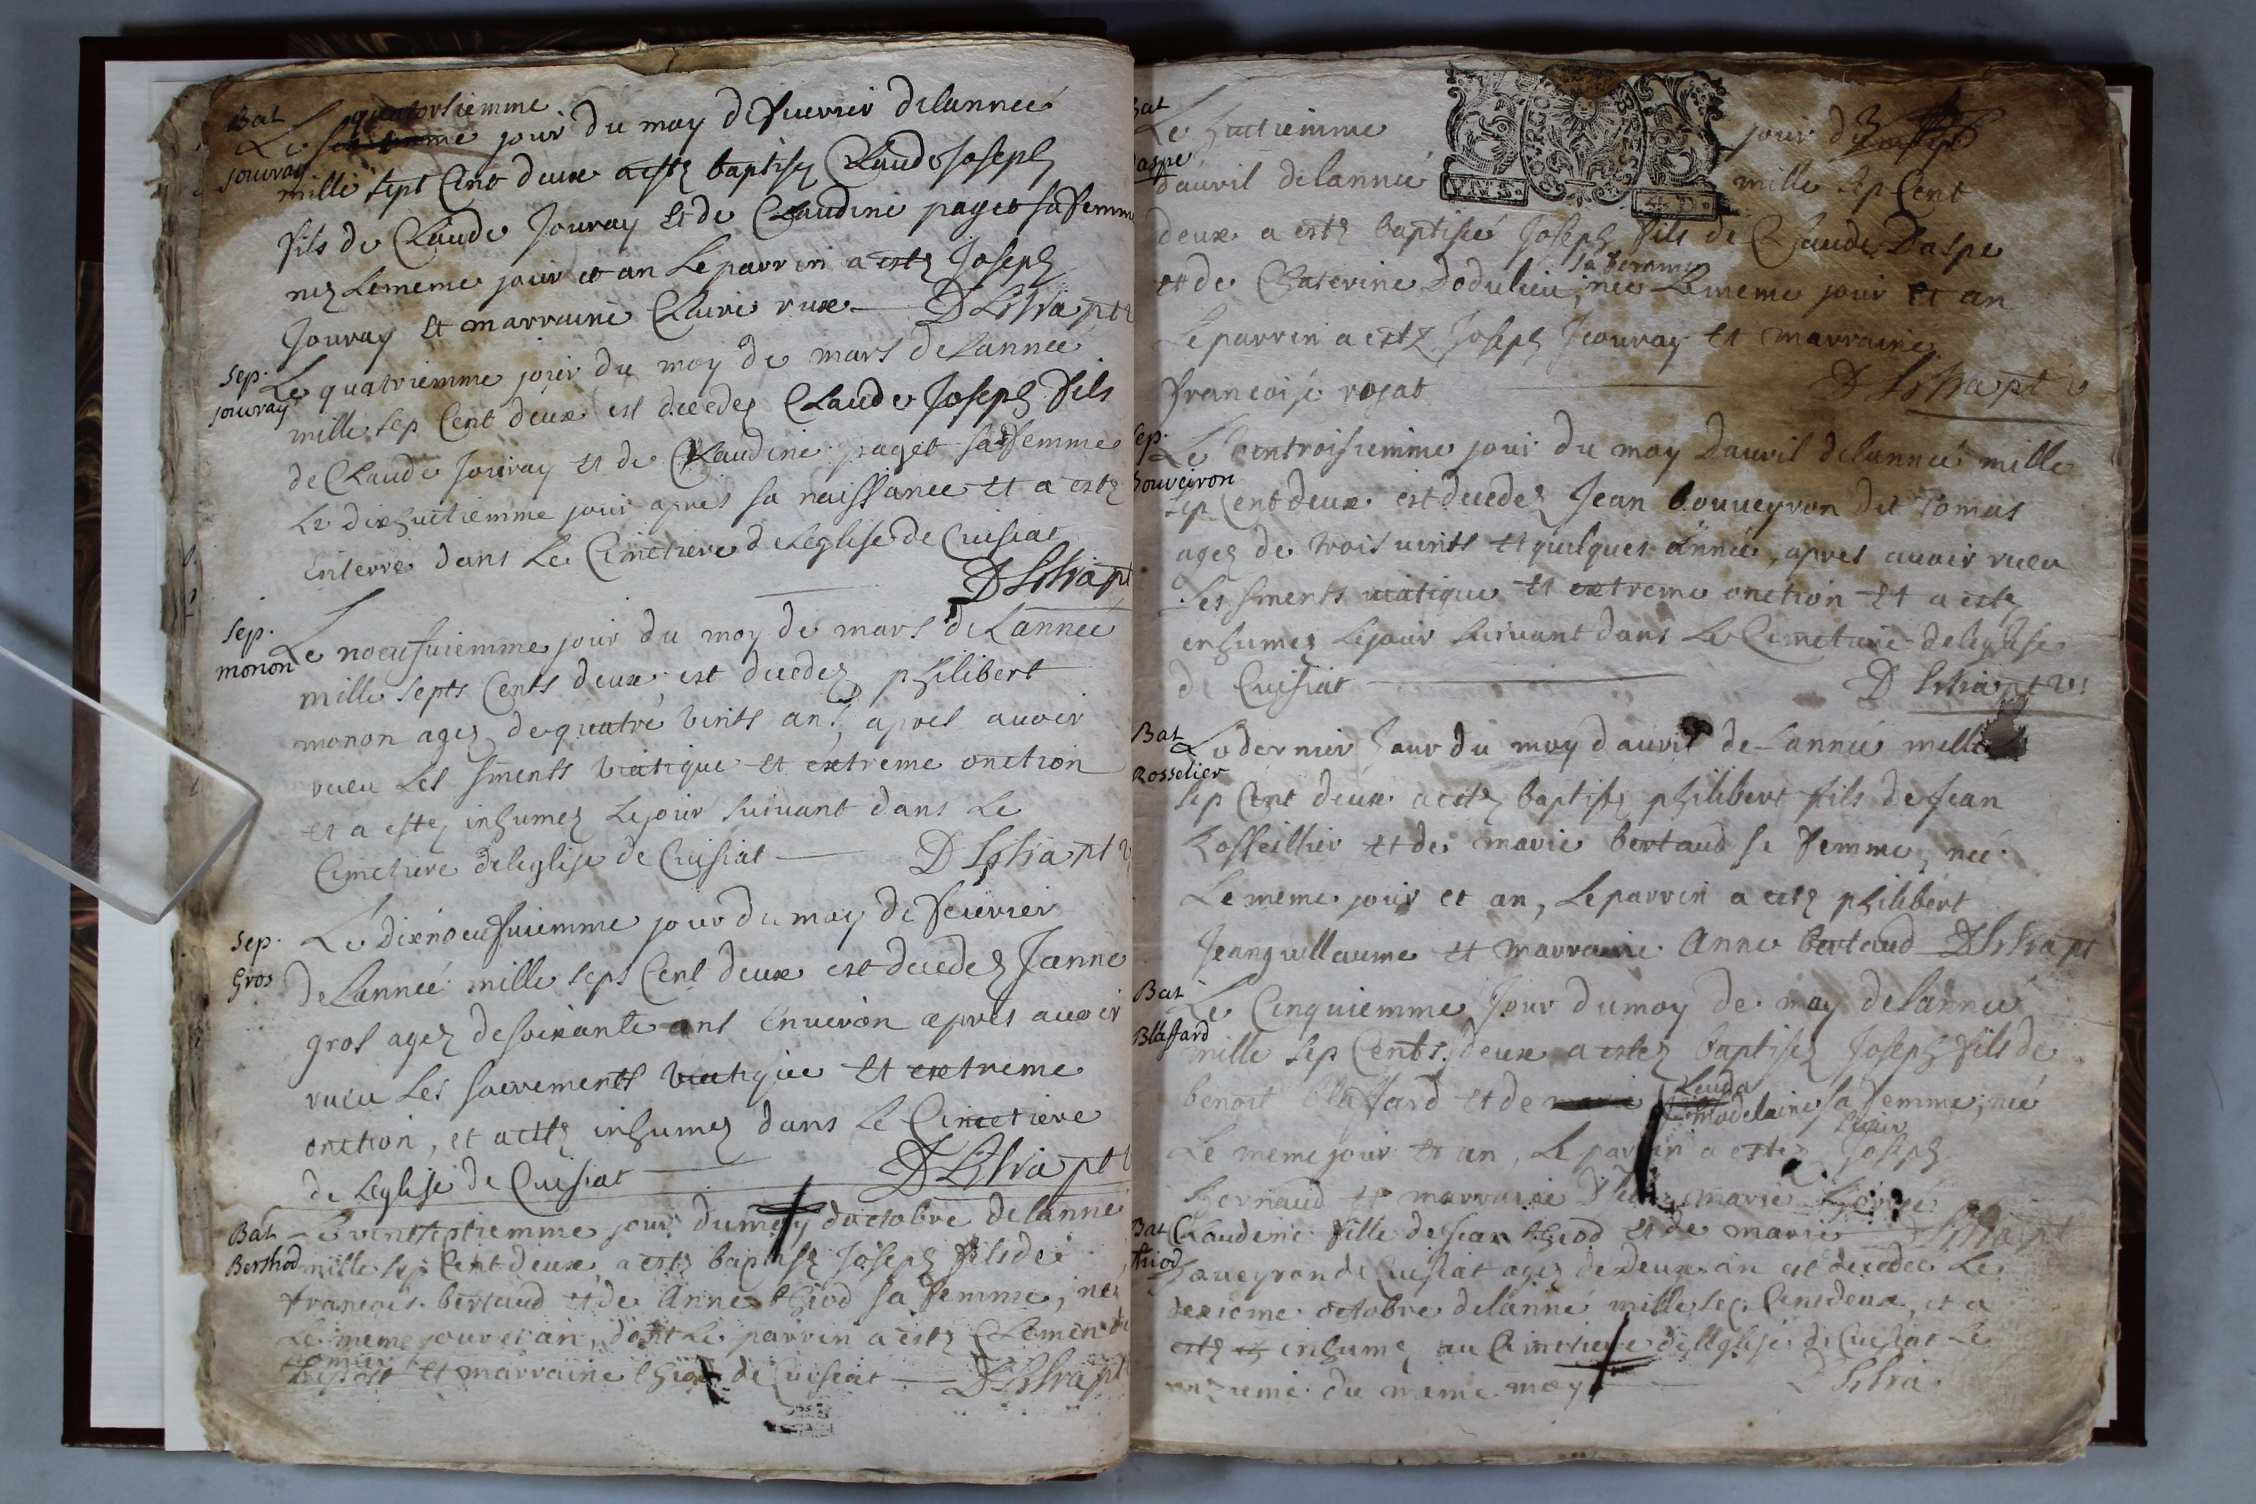 Bat
jouvray
quatorsiemme
Le jour du moy de fuvrier delannee
mille sept Cent deux a estz baptisez Claude Joseph
fils de Claude Jouvay et de Claudine paget sa femme
nez lememe jour et an Le parrin a estz Joseph
Jouvay et marraine Claire rux
Sep.
jouvray
Le quatriemme jour du moy de mars de Lannee
mille sep Cent deux est decedez Claude Joseph fils
de Claude Jouvay et de Claudine paget sa femme
Le dixhuitiemme jour apres sa naissance et a estz
enterre dans Le Cimetiere de Leglise de Cuisiat
Sep.
monon
Le noeufuiemme jour du moy de mars de Lannee
mille septs Cents deux est decedez philibert
monon agez de quatre vints ans, apres avoir
receu Les sments viatique et extreme onction
et a estez inhumez Lejour suivant dans Le
Cimetiere deleglise de Cuisiat
Sep.
Gros
Le dixnoeufuiemme jour du moy de feuvrier
de Lanneé mille sept Cent deux est decedez Janne
gros agez de soixante ans Environ apres avoir
receu Les sacrements viatique et extreme
onction, et a estz inhumez dans Le Cimetiere
de Leglise de Cuisiat
Bat
Berthod
Le vintseptiemme jour du moy doctobre delanné
mille sep Cent deux a estz baptisz Joseph fils de
francois bertaud et de Anne thiod sa femme, nez
Le meme jour et an, dont Le parrin a estz
et marraine de Cuisiat
Bat
Daspe
Le huitiemme jour du
dauril delanneé mille sep Cent
deux a estz baptiseé Joseph fils de Claude Daspe
sa femme
et de Chaterine Dodulieu, nee Le meme jour et an
Le parrin a estz Joseph Jouvay et marraine
francoise rojat
Sep.
bouveiron
Le ventroisiemme jour du moy Dauril delanneé mille
sep Cent deux est decedez Jean bouveyron dit tomas
agez de trois vints et quelques année, apres avoir receu
Les sments viatique et extreme onction et a estz
enhumez Lejour suivant dans Le Cimetiere deleglise
de Cuisiat
Bat
Rosselier
Lo dernier jour du moy dauril de Lanneé mille
sep Cent deux a estz baptisz philibert fils de Jean
Rosseillier et de marie bertaud se femme, neé
Le meme jour et an, Le parrin a estz philibert
Jeanguillaume et marraine Anne bertaud
Bat
Blaffard
Le Cinquiemme Jour du moy de may delanneé
mille sep Cents deux a estez baptisez Joseph fils de
benoit blaffard et de madelaine sa femme, neé
Le meme jour et an, Le parrin a estez Joseph
et marraine marie
Bat
thiod
Claudine fille de Jean thiod et de marie
boueyron de Cuisiat agez de deux an est decedee Le
dexieme octobre delanné mille sep Cent deux, et a
estz inhumez au Cimetiere deleglise de Cuisiat Le
onzieme du meme moy